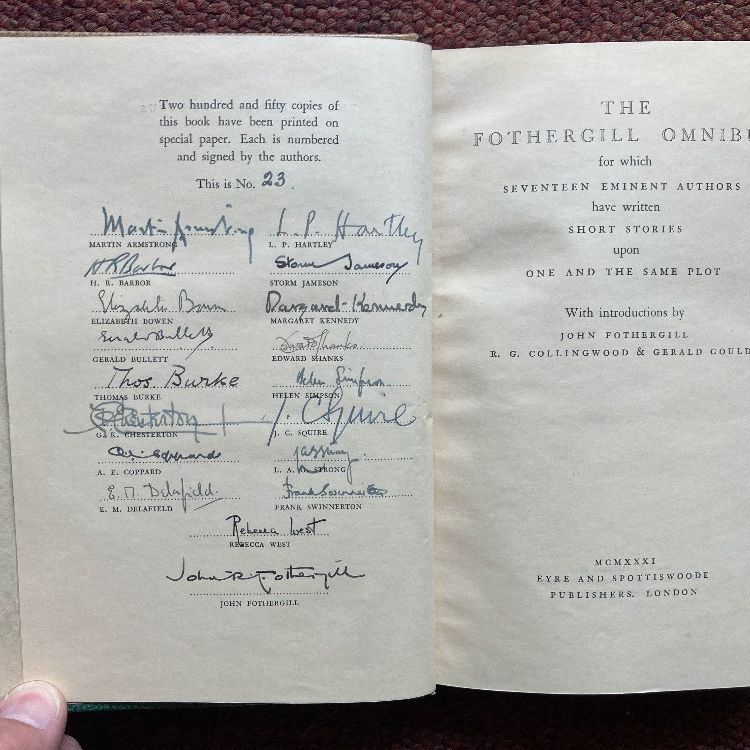 Two hundred and fifty copies of
this book have been printed on
special paper. Each is numbered
and signed by the authors.
This is No. 23.
Martin Armstrong L. P. Hartley
MARTIN ARMSTRONG L. P. HARTLEY
H R Barbor Storm Jameson
H. R. BARBOR STORM JAMESON
Elizabeth Bowen Margaret Kennedy
ELIZABETH BOWEN MARGARET KENNEDY
Gerald Bullett Edward Shanks
GERALD BULLETT EDWARD SHANKS
Thos Burke Helen Simpson
THOMAS BURKE HELEN SIMPSON
GK Chesterton J. C Squire
G. K. CHESTERTON J. C. SQUIRE
Coppard
A. E. COPPARD L. A. G. STRONG
E. M. Delafield. Frank Swinnerton
E. M. DELAFIELD FRANK SWINNERTON
Rebecca West
REBECCA WEST
John R. Fothergill
JOHN FOTHERGILL
THE
FOTHERGILL OMNIBU
for which
SEVENTEEN EMINENT AUTHORS
have written
SHORT STORIES
upon
ONE AND THE SAME PLOT
With introductions by
JOHN FOTHERGILL
R. G. COLLINGWOOD & GERALD GOULD
MCMXXXI
EYRE AND SPOTTISWOODE
PUBLISHERS, LONDON